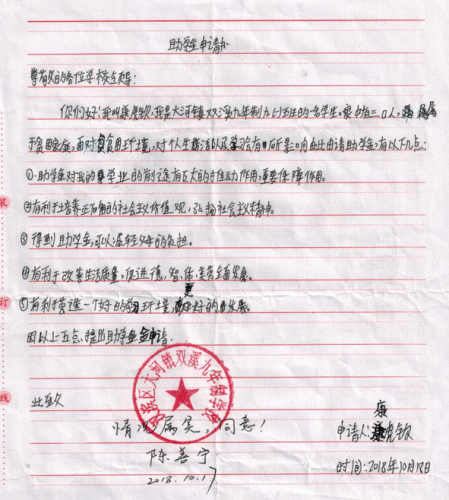 助学金申请书
尊敬的各位学校领导:
你们好!我叫康虎钦,我是大河镇双溪九年制九(1)班的一名学生。家中有三口人,属
于贫困家庭,面对贫困环境,对个人生活以及学习有所影响由此申请助学金,有以下几点:
①.助学金对我的学业的创造有巨大的推动作用,重要保障作用。
②有利于培养正确的社会主义价值观,弘扬社会主义精神。
③得到助学金,可以减轻父母的负担。
④有利于改善生活质量,促进德、智、体、美全面发展。
⑤有利于营造一个好的学习环境,更好的发展。
因以上五点,提出助学金申请。
此致
大河镇双溪九年制学校
情况属实,同意!
申请人:康虎钦
陈善宁
2018.10.17
时间:2018年10月17日
装
订
线